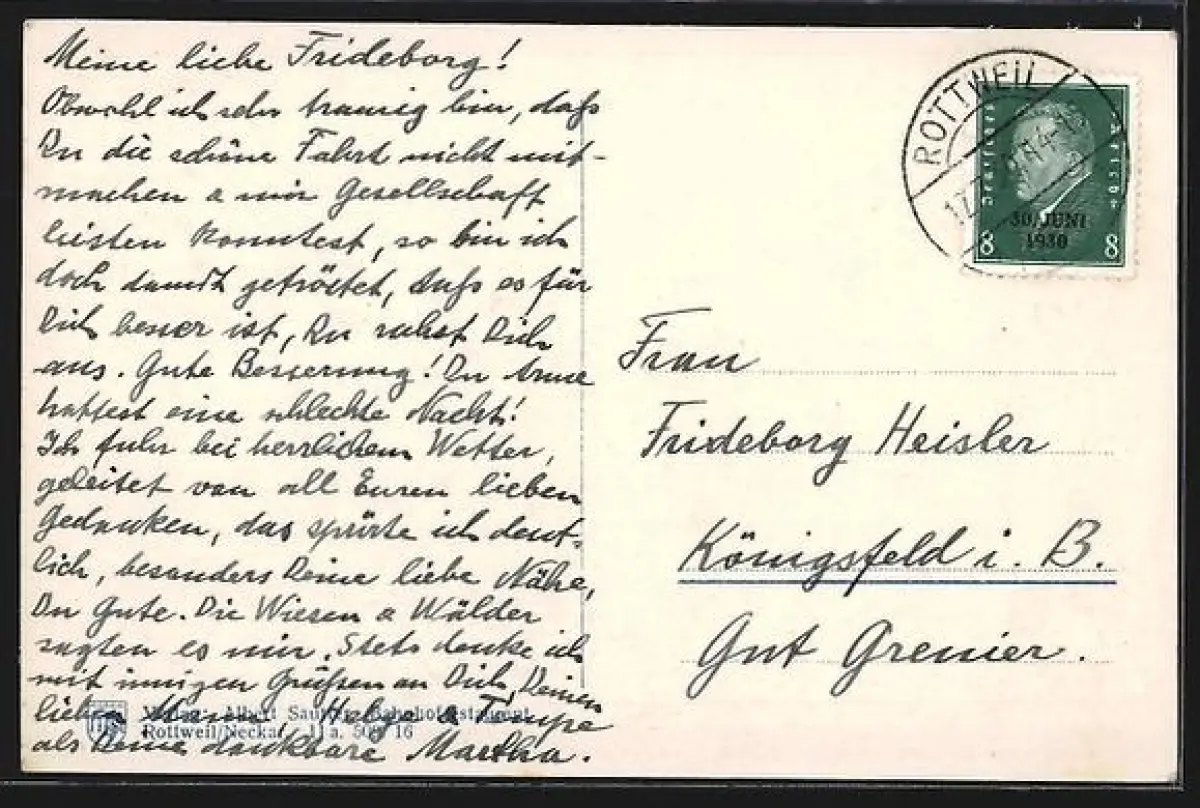 Meine liebe Frideborg!
Obwohl ich sehr traurig bin, daß
Du die schöne Fahrt nicht mit-
machen & mir Gesellschaft
leisten konntest, so bin ich
doch damit getröstet, daß es für
Dich besser ist, Du ruhst Dich
aus. Gute Besserung! Du Arme
hattest eine schlechte Nacht!
Ich fuhr bei herrlichem Wetter,
geleitet von all Euren lieben
Gedanken, das spürte ich deut-
lich, besonders Deine liebe Nähe,
Du Gute. Die Wiesen & Wälder
sagten es mir. Stets denke ich
mit innigen Grüßen an Dich, Deinen
lieben Helge &
als Deine dankbare Martha.
Verlag: Albert Bahnhofrestaurant
Rottweil/Neckar 11 a. 16
ROTTWEIL
Deutsches Reich
30. JUNI
1930
8 8
Frau
Frideborg Heisler
Königsfeld i. B.
Gut Grenier.